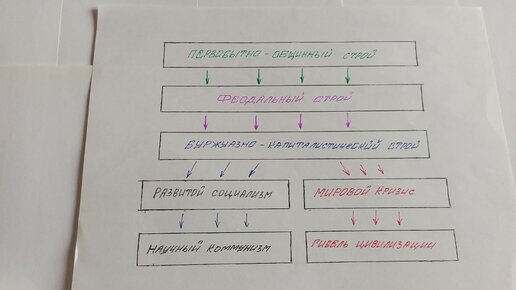 ПЕРВОБЫТНО - ОБЩИННЫЙ СТРОЙ
ФЕОДАЛЬНЫЙ СТРОЙ
БУРЖУАЗНО - КАПИТАЛИСТИЧЕСКИЙ СТРОЙ
РАЗВИТОЙ СОЦИАЛИЗМ
МИРОВОЙ КРИЗИС
НАУЧНЫЙ КОММУНИЗМ
ГИБЕЛЬ ЦИВИЛИЗАЦИИ